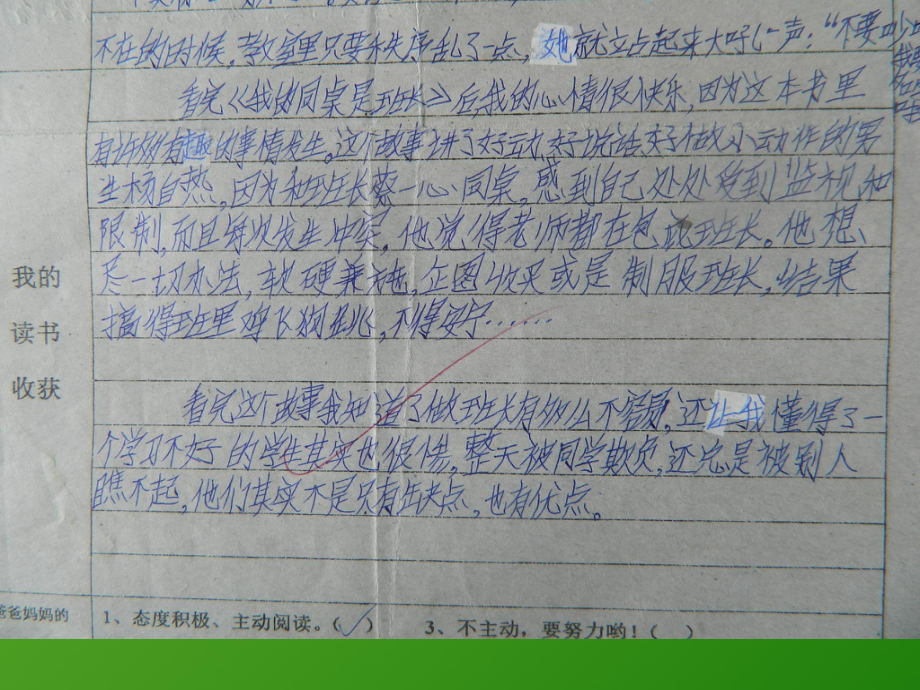 不在的时候，教室里只要秩序乱了一点，她就立占起来大吼一声：“不要吵
看完《我的同桌是班长》后，我的心情很快乐，因为这本书里
有许多有趣的事情发生。这个故事讲了好动、好说话、好做小动作的男
生杨自热，因为和班长蔡一心同桌，感到自己处处受到监视和
限制，而且每次发生冲突，他觉得老师都在包庇班长。他想、
尽一切办法，软硬兼施，企图收买或是制服班长，结果
搞得班里鸡飞狗跳，不得安宁……
看完这个故事我知道了做班长有多么不容易，还让我懂得了一
个学习不好的学生其实也很伤，整天被同学欺负，还总是被别人
瞧不起，他们其实不是只有缺点，也有优点。
我的
读书
收获
爸爸妈妈的
1、态度积极、主动阅读。(✓)
3、不主动，要努力哟！( )